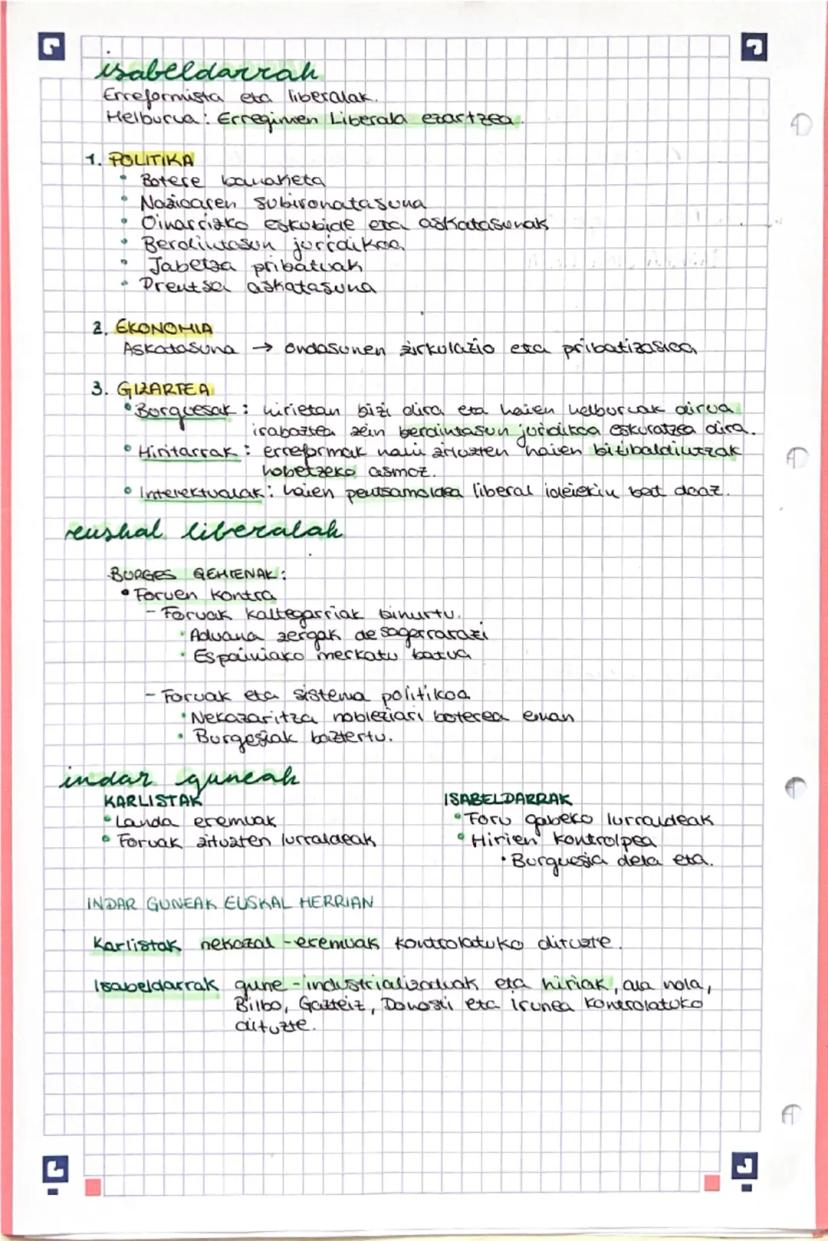 isabeldarrak
Erreformista eta liberalak.
Helburua: Erregimen Liberala ezartzea.
1. POLITIKA
• Botere banaketa
• Nazioaren subironatasuna
• Oinarrizko eskubide eta askatasunak
• Berdintasun juridikoa
• Jabetza pribatuak
• Prentsa askatasuna
2. EKONOMIA
Askatasuna → ondasunen zirkulazio eta pribatizazioa
3. GIZARTEA
• Burguesak: hirietan bizi dira eta haien helburuak dirua
irabaztea zein berdintasun juridikoa eskuratzea dira.
• Hiritarrak: erreformak nahi zituzten haien bizibaldintzak
hobetzeko asmoz.
• Intelektualak: haien pentsamoldea liberal ideiekin bat doaz.
euskal liberalak
BURGES GEHIENAK:
• Foruen kontra
- Foruak kaltegarriak bihurtu.
• Aduana zergak desagerrarazi
• Espainiako merkatu batua
- Foruak eta sistema politikoa
• Nekazaritza nobleziari boterea eman
• Burgesiak baztertu.
indar guneak
KARLISTAK
• Landa eremuak
• Foruak zituzten lurraldeak
ISABELDARRAK
• Foru gabeko lurraldeak
• Hirien kontrolpea
• Burguesia dela eta.
INDAR GUNEAK EUSKAL HERRIAN
Karlistak nekazal-eremuak kontrolatuko dituzte.
Isabeldarrak gune-industrializatuak eta hiriak, ala nola,
Bilbo, Gazteiz, Donosti eta Irunea kontrolatuko
dituzte.